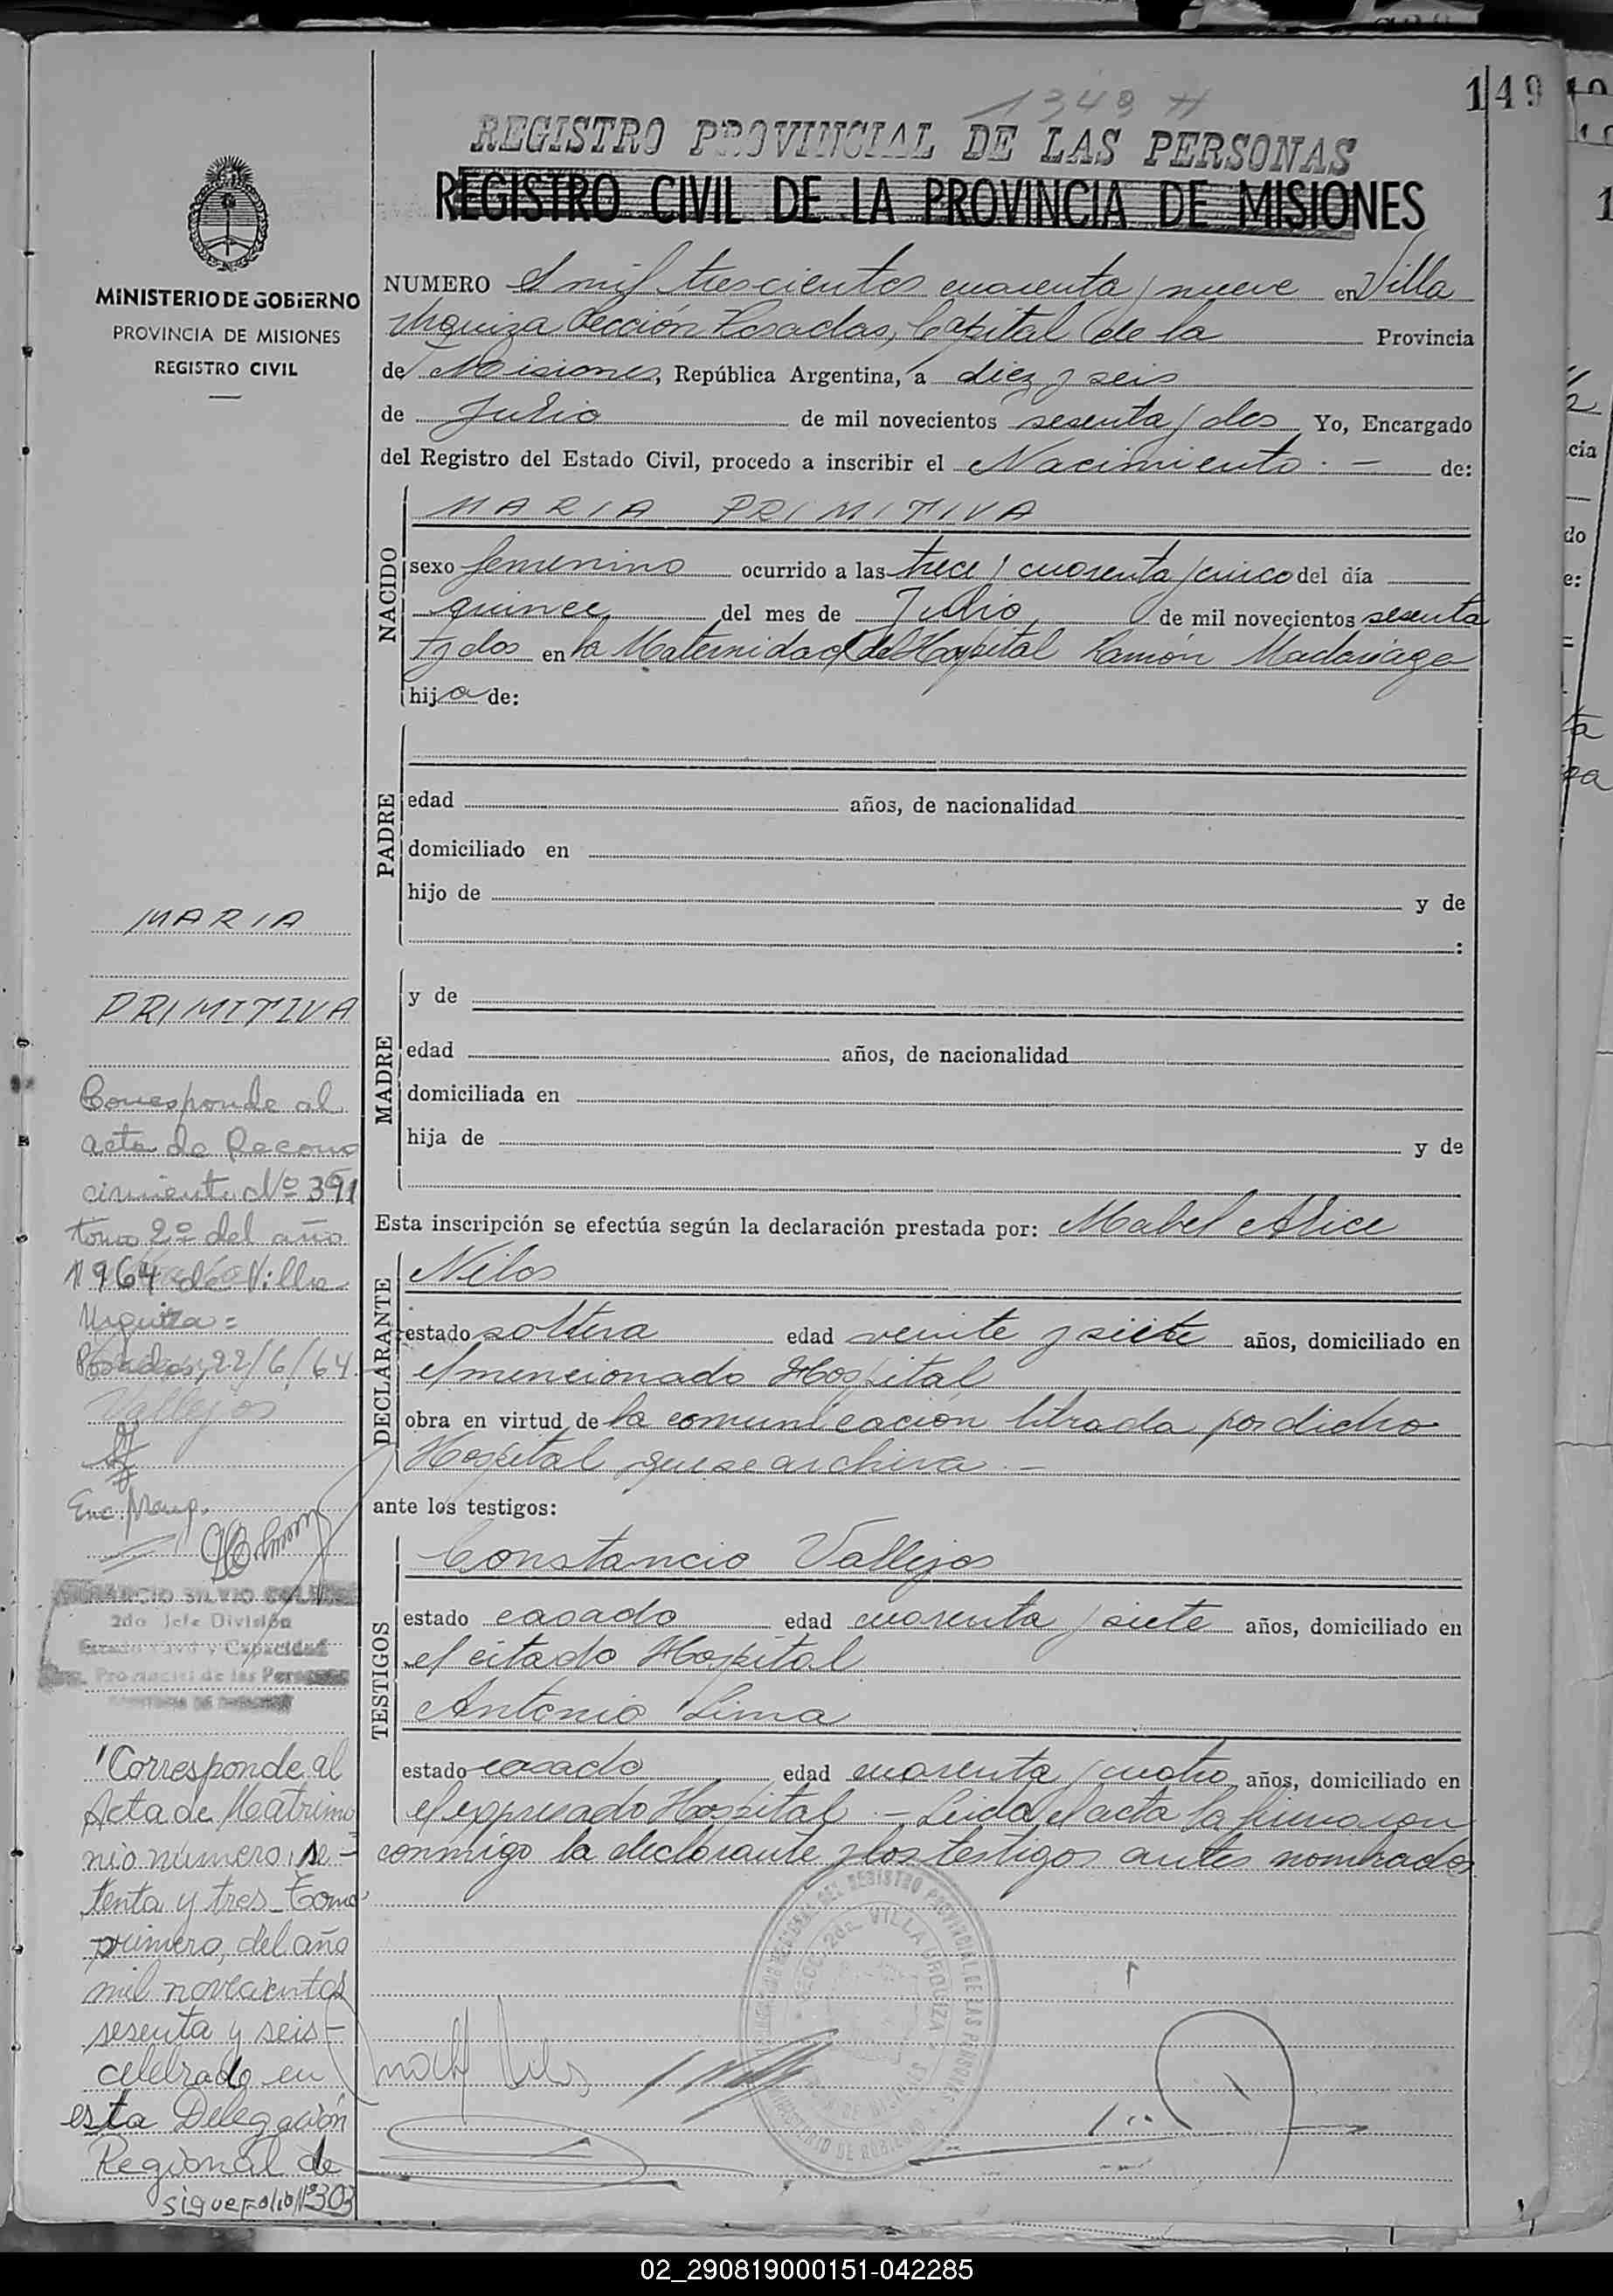 149
1349 H
REGISTRO PROVINCIAL DE LAS PERSONAS
REGISTRO CIVIL DE LA PROVINCIA DE MISIONES
MINISTERIO DE GOBIERNO
PROVINCIA DE MISIONES
REGISTRO CIVIL
NUMERO mil trescientos cuarenta y nueve en Villa
Urquiza Sección Posadas, Capital de la Provincia
de Misiones, República Argentina, a diez y seis
de Julio de mil novecientos sesenta y dos Yo, Encargado
del Registro del Estado Civil, procedo a inscribir el Nacimiento . - de:
NACIDO
MARIA PRIMITIVA
sexo femenino ocurrido a las trece y cuarenta y cinco del día
quince del mes de Julio de mil novecientos sesenta
y dos en la Maternidad del Hospital Ramón Madariaga
hija de:
PADRE
edad años, de nacionalidad
domiciliado en
hijo de y de
:
MADRE
y de
edad años, de nacionalidad
domiciliada en
hija de y de
Esta inscripción se efectúa según la declaración prestada por: Mabel Alice
DECLARANTE
Nilos
estado soltera edad veinte y siete años, domiciliado en
el mencionado Hospital
obra en virtud de la comunicación librada por dicho
Hospital que se archiva . -
ante los testigos:
TESTIGOS
Constancio Vallejos
estado casado edad cuarenta y siete años, domiciliado en
el citado Hospital
Antonio Lima
estado casado edad cuarenta y cuatro años, domiciliado en
el expresado Hospital . - Leida el acta la firmaron
conmigo la declarante y los testigos antes nombrados
MARIA
PRIMITIVA
Corresponde al
acta de Recono
cimiento Nº 391
tomo 2º del año
1964 de Villa
Urquiza =
Posadas, 22/6/64
Vallejos
Enc.
2do Jefe División
Estado Civil y Capacidad
Provincial de las Personas
Corresponde al
Acta de Matrimo
nio número, se -
tenta y tres - Tomo
primero, del año
mil novecientos
sesenta y seis -
celebrado en
esta Delegación
Regional de
sigue Folio Nº 303
DEL REGISTRO PROVINCIAL DE LAS PERSONAS
SECC. 2da. VILLA URQUIZA
02_290819000151-042285